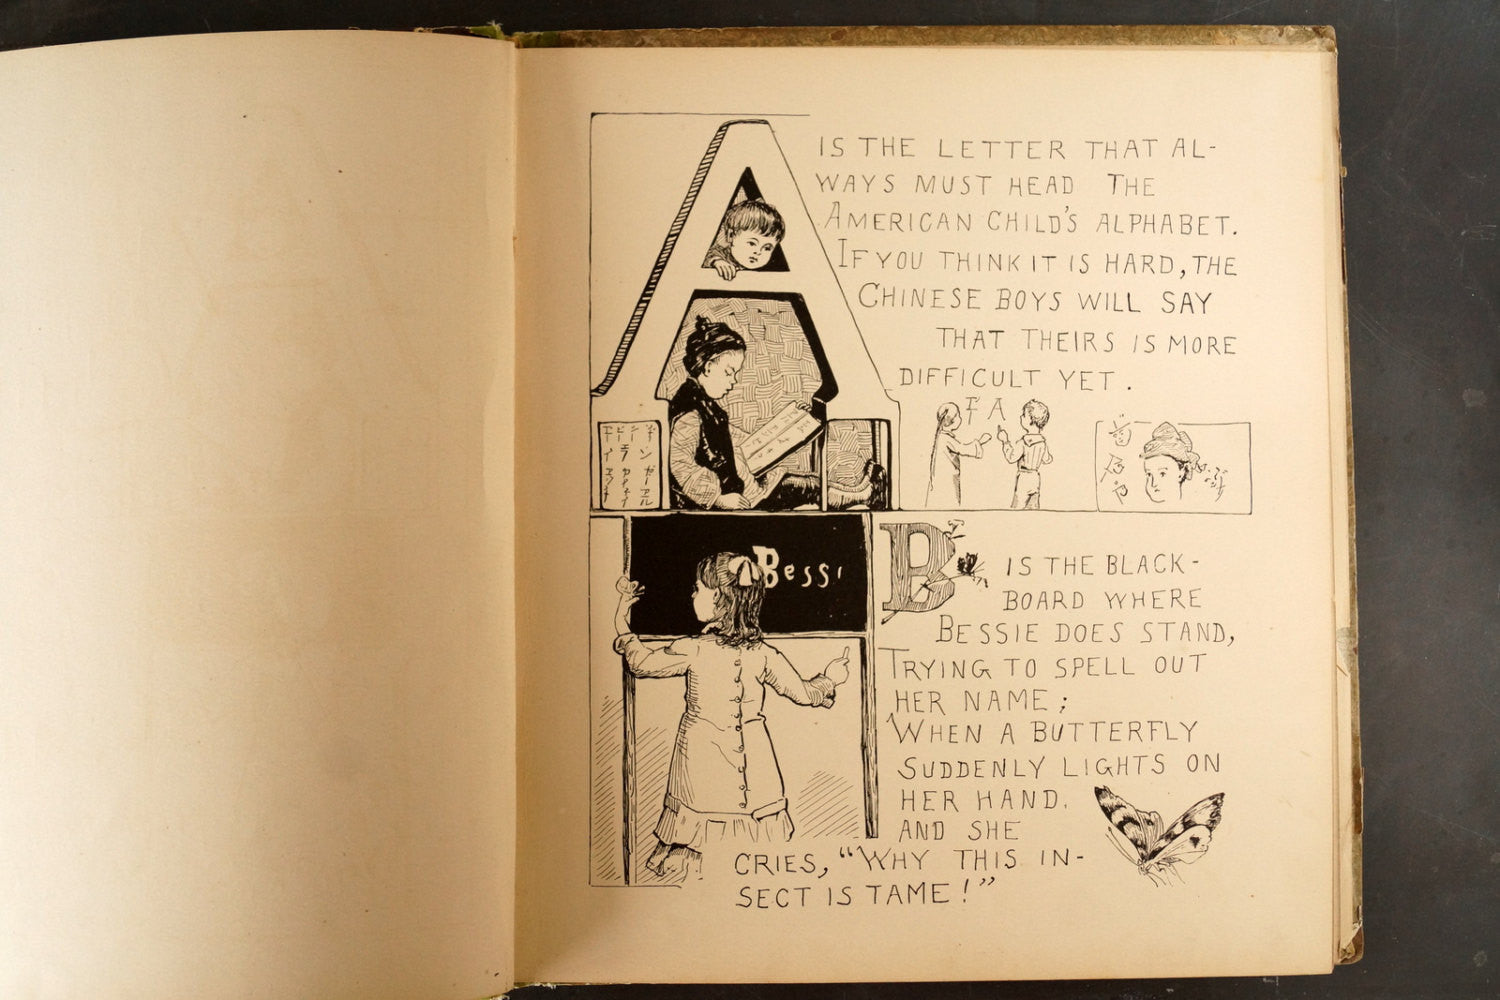 A IS THE LETTER THAT AL-
WAYS MUST HEAD THE
AMERICAN CHILD'S ALPHABET.
IF YOU THINK IT IS HARD, THE
CHINESE BOYS WILL SAY
THAT THEIRS IS MORE
DIFFICULT YET.
A
Bessi
B IS THE BLACK-
BOARD WHERE
BESSIE DOES STAND,
TRYING TO SPELL OUT
HER NAME;
WHEN A BUTTERFLY
SUDDENLY LIGHTS ON
HER HAND.
AND SHE
CRIES, "WHY THIS IN-
SECT IS TAME!"